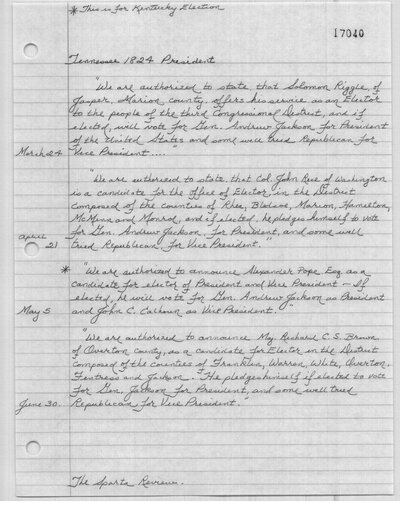 * This is for Kentucky Election
17040
Tennessee 1824 President
"We are authorized to state that Solomon Riggle, of
Jasper, Marion county, offers his service as an Elector
to the people of the third Congressional District, and if
elected, will vote for Gen. Andrew Jackson for President
of the United States and some well tried Republican for
March 24 Vice President...."
"We are authorized to state that Col. John Rice of Washington
is a candidate for the office of Elector, in the District
composed of the counties of Rhea, Bledsoe, Marion, Hamilton,
McMinn and Monroe, and if elected, he pledges himself to vote
for Gen. Andrew Jackson, for President, and some well
April 21 tried Republican for Vice President."
* "We are authorized to announce Alexander Pope Esq. as a
candidate for elector of President and Vice President — If
elected, he will vote for Gen. Andrew Jackson as President
May 5 and John C. Calhoun as Vice President."
"We are authorized to announce Maj. Richard C. S. Brown
of Overton County, as a candidate for Elector in the District
composed of the counties of Franklin, Warren, White, Overton,
Fentress and Jackson. He pledges himself if elected to vote
for Gen. Jackson for President, and some well tried
June 30 Republican for Vice President."
The Sparta Review.